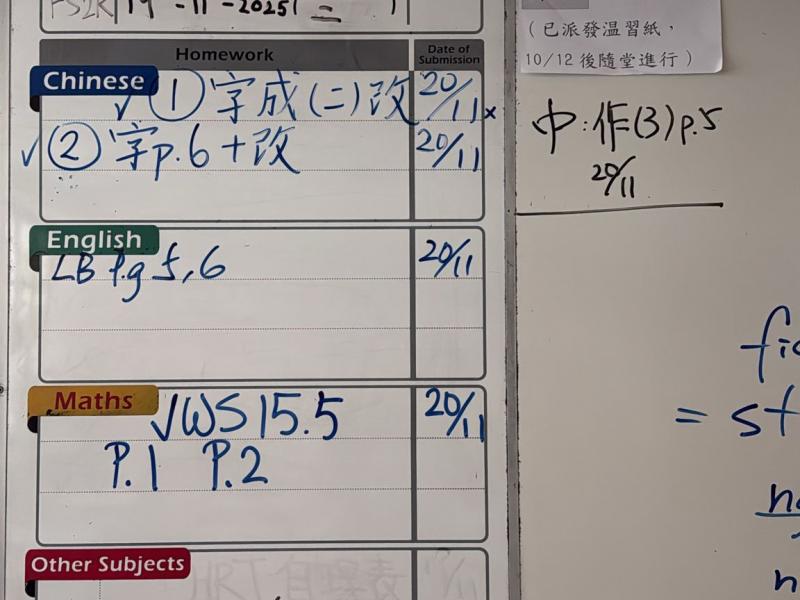 19-11-2025(二)
Homework
Date of Submission
Chinese
✓ ① 字成(二)改 20/11 ×
✓ ② 字p.6+改 20/11
English
LB Pg 5,6 20/11
Maths
✓ WS 15.5 20/11
P.1 P.2
Other Subjects
(已派發溫習紙，
10/12後隨堂進行)
中:作(3)p.5
20/11
= st